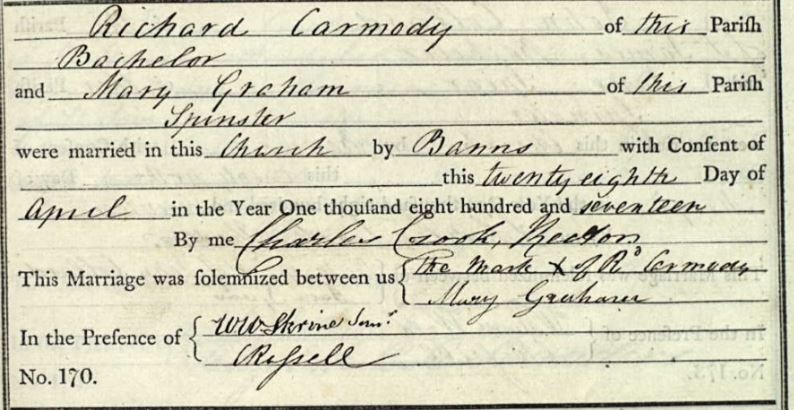 Richard Carmody of this Pariſh
Bachelor
and Mary Graham of this Pariſh
Spinster
were married in this Church by Banns with Conſent of
this twenty eighth Day of
April in the Year One thouſand eight hundred and seventeen
By me Charles Crook, Rector
This Marriage was ſolemnized between us { The Mark X of Rd Carmody
Mary Graham
In the Preſence of { WW Skrine Senr
No. 170.